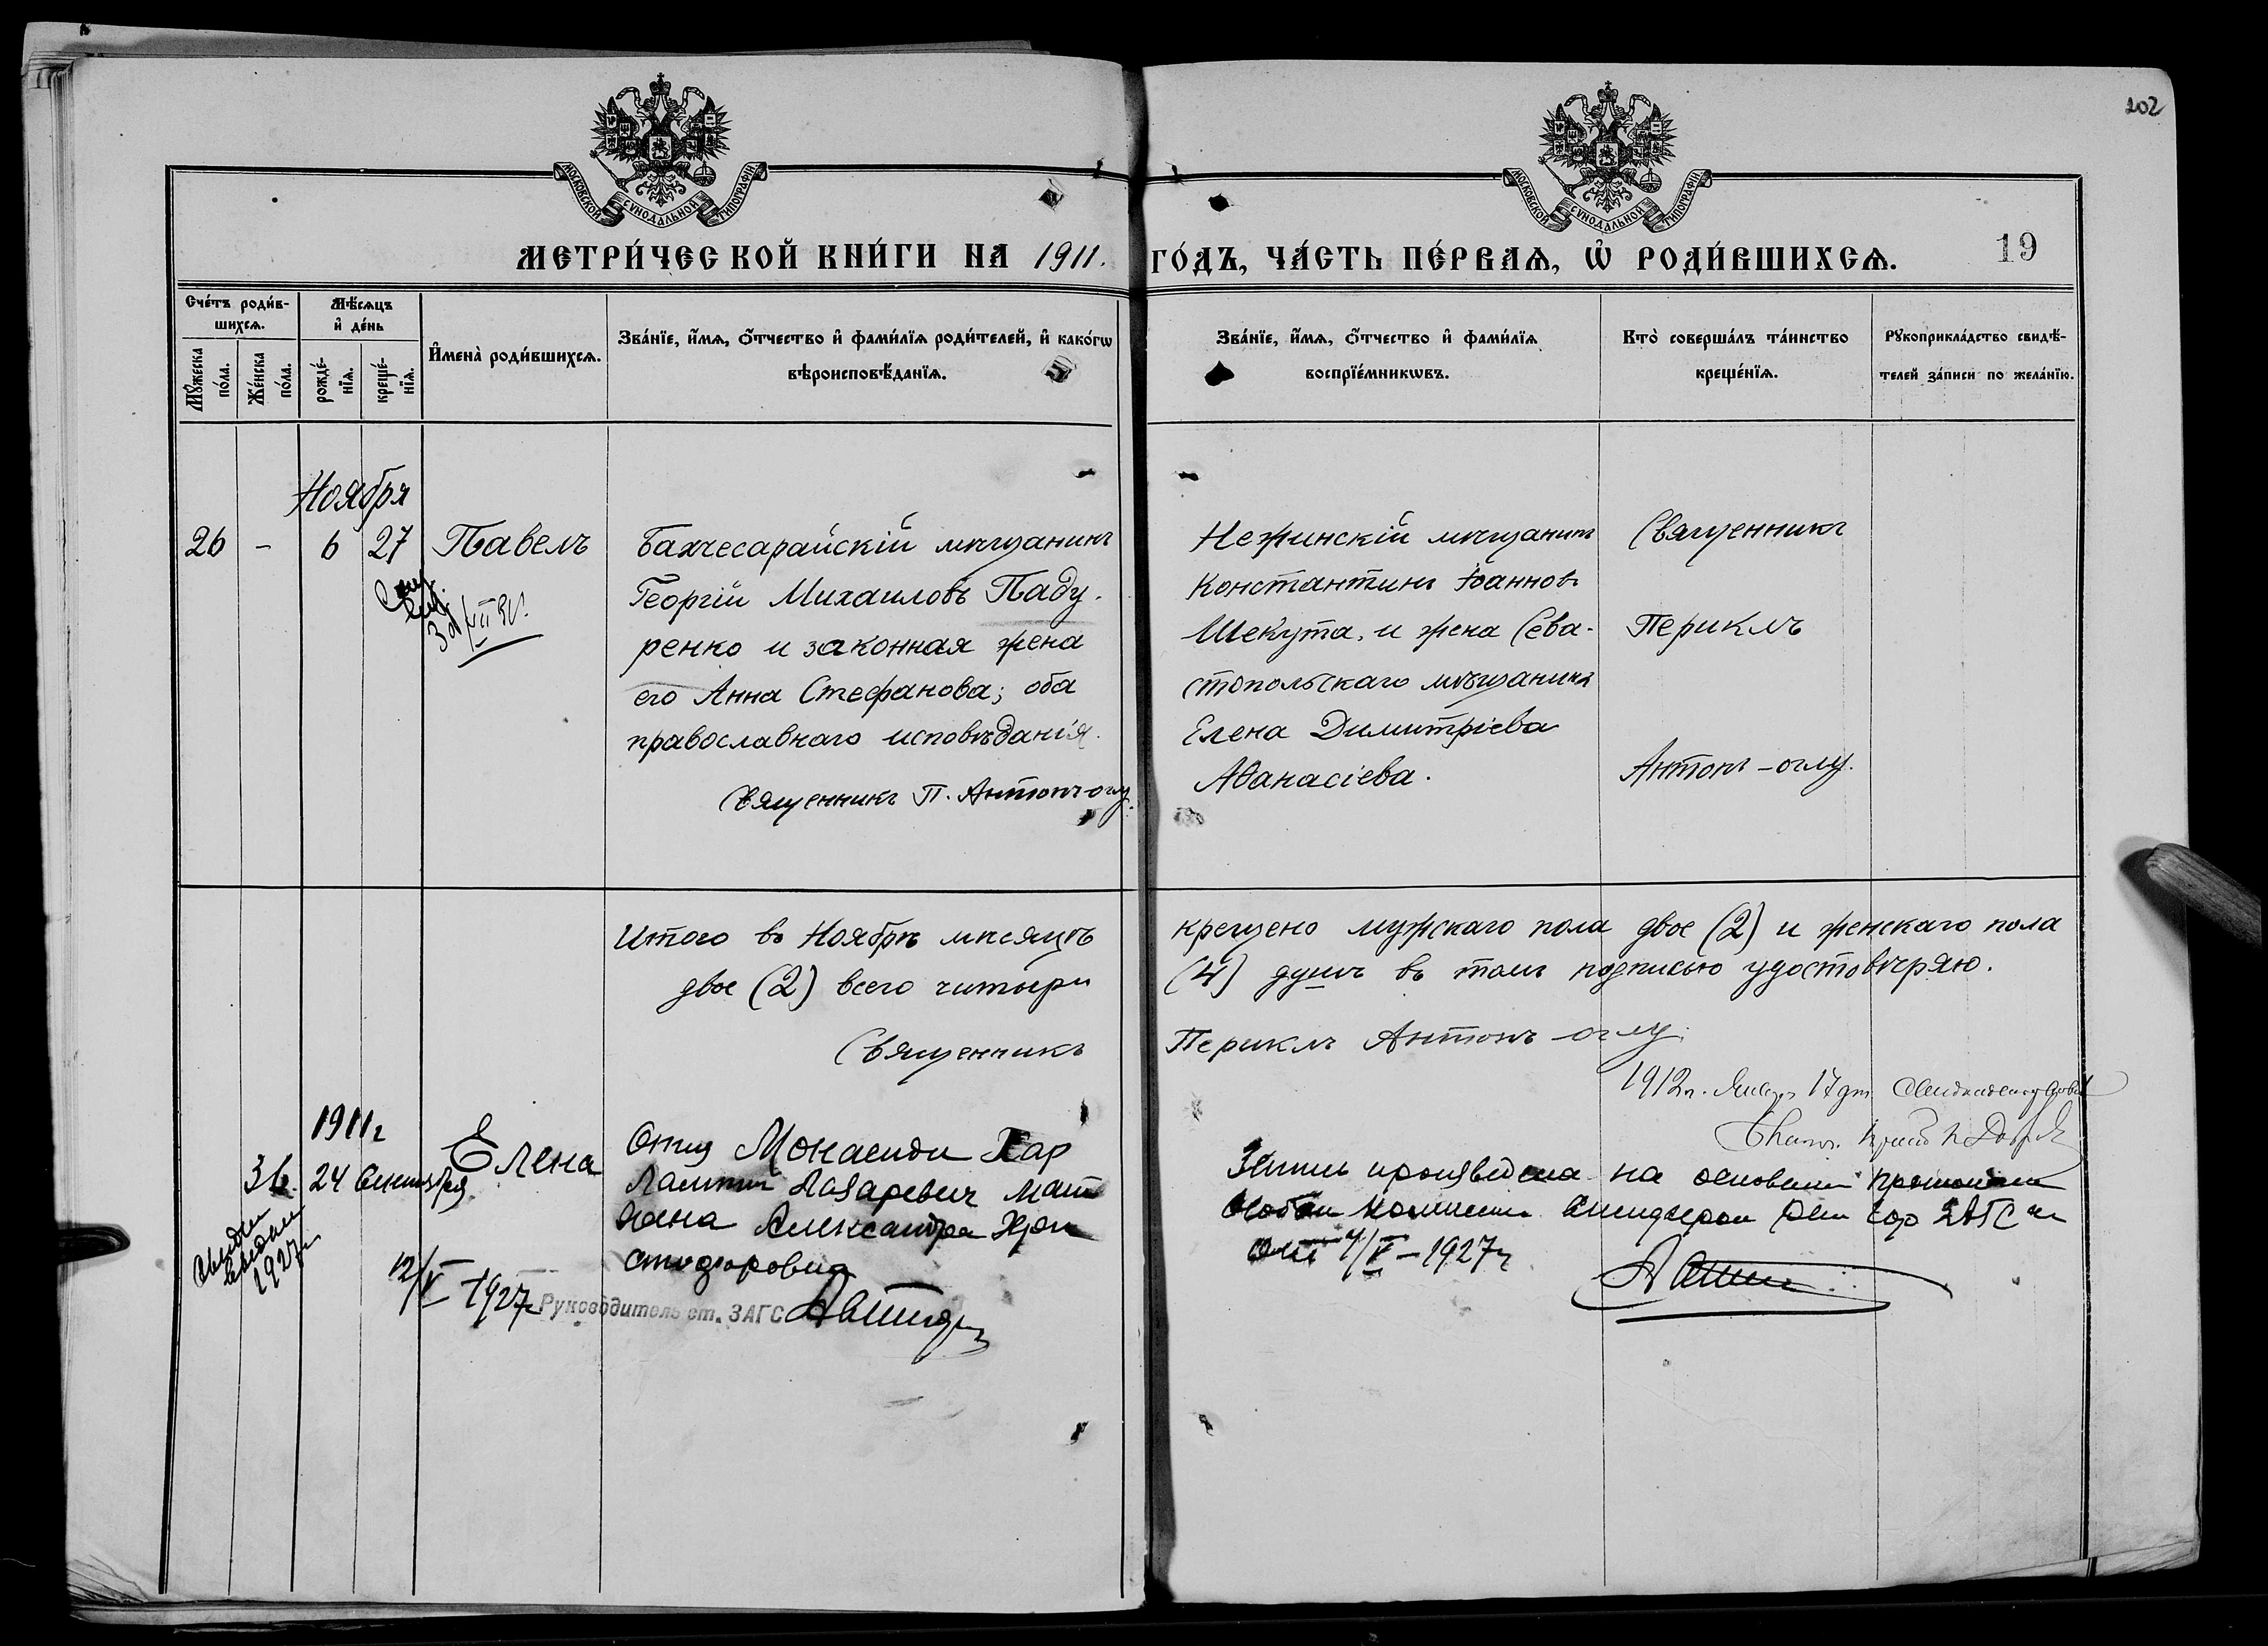 202
МОСКОВСКОЙ СУНОДАЛЬНОЙ ТИПОГРАФІИ
МОСКОВСКОЙ СУНОДАЛЬНОЙ ТИПОГРАФІИ
МЕТРИ́ЧЕСКОЙ КНИ́ГИ НА 1911.
ГО́ДЪ, ЧА́СТЬ ПЕ́РВАѦ, Ѽ РОДИ́ВШИХСѦ.
19
Сче́тъ роди́в-
шихсѧ.
Мꙋ́жеска
по́ла.
Же́нска
по́ла.
Мѣ́сѧцъ
и҆ де́нь
рожде́-
нїѧ.
креще́-
нїѧ.
И҆мена̀ роди́вшихсѧ.
Зва́нїе, и҆́мѧ, ѻ҆́тчество и҆ фами́лїѧ роди́телей, и҆ како́гѡ
вѣроисповѣ́данїѧ.
Зва́нїе, и҆́мѧ, ѻ҆́тчество и҆ фами́лїѧ
воспрїе́мникѡвъ.
Кто̀ соверша́лъ та́инство
креще́нїѧ.
Рꙋкоприкла́дство свидѣ́-
телей за́писи по жела́нїю.
Ноября
26 - 6 27 Павелъ
Бахчесарайскій мѣщанинъ
Георгій Михаиловъ Паду-
ренко и законная жена
его Анна Стефанова; оба
православнаго исповѣданія.
Священникъ П. Антонъ-оглу.
Нежинскій мѣщанинъ
Константинъ Іоанновъ
Шекута, и жена Сева-
стопольскаго мѣщанина
Елена Димитріева
Аѳанасіева.
Священникъ
Периклъ
Антонъ-оглу.
Итого въ Ноябрѣ мѣсяцѣ крещено мужскаго пола двое (2) и женскаго пола
двое (2) всего читыри (4) душъ въ томъ подписью удостовѣряю.
Священникъ Периклъ Антонъ-оглу.
1912 г. 17
1911 г
24
Елена
Отец Монасиди Хар
Лазаревич мать
Александра
12/V 1927 г
Руководитель ст. ЗАГС
1927 г
произведена на основании
ЗАГС
4/V-1927 г